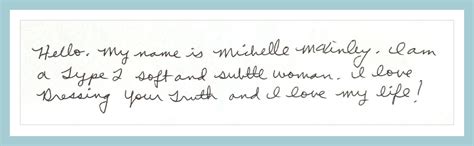 Hello. My name is Michelle McKinley. I am
a Type 2 soft and subtle woman. I love
Dressing Your Truth and I love my life!